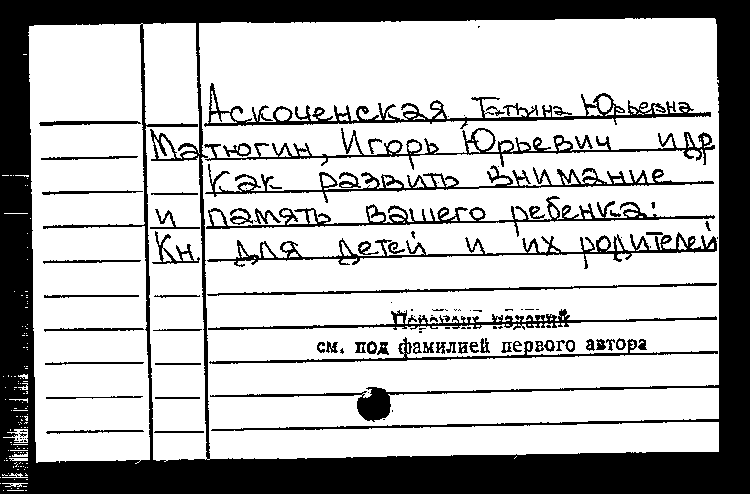 Аскоченская, Татьяна Юрьевна
Матюгин, Игорь Юрьевич и др
Как развить внимание
и память вашего ребенка:
Кн. для детей и их родителей
Перечень изданий
см. под фамилией первого автора